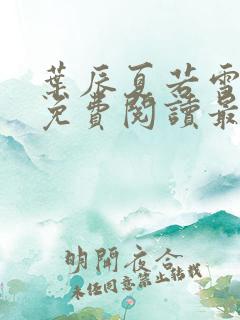 葉辰夏若雪
免費閱讀最
明開夜合
未經同意禁止轉載